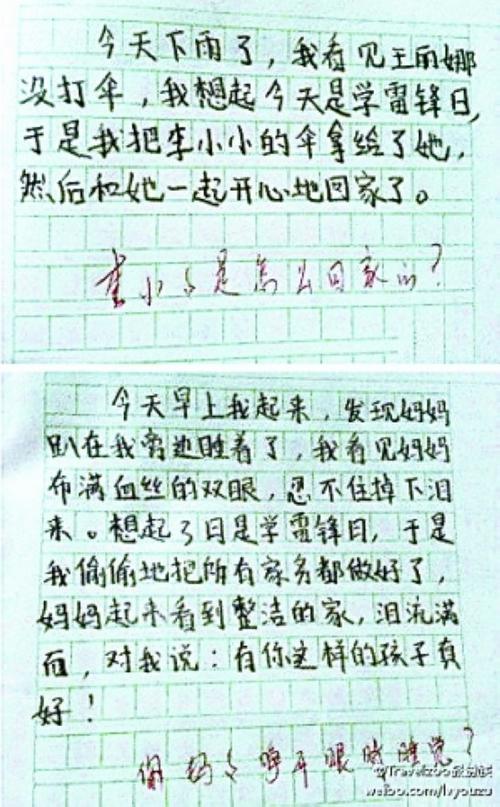 今天下雨了，我看见王丽娜
没打伞，我想起今天是学雷锋日，
于是我把李小小的伞拿给了她，
然后和她一起开心地回家了。
李小小是怎么回家的？
今天早上我起来，发现妈妈
趴在我旁边睡着了，我看见妈妈
布满血丝的双眼，忍不住掉下泪
来。想起了日是学雷锋日，于是
我偷偷地把所有家务都做好了，
妈妈起来看到整洁的家，泪流满
面，对我说：有你这样的孩子真
好！
你妈妈睁开眼睛睡觉？
@Travelzoo旅游族
weibo.com/lvyouzu